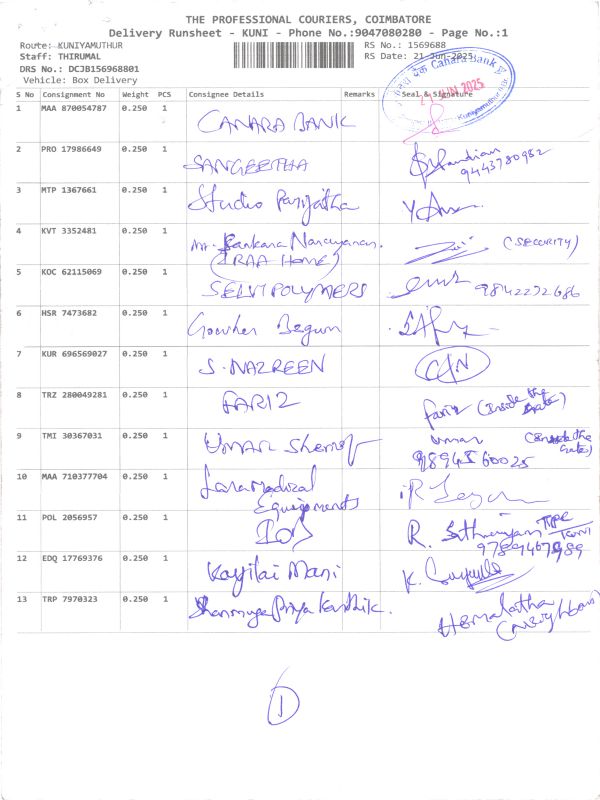 THE PROFESSIONAL COURIERS, COIMBATORE
Delivery Runsheet - KUNI - Phone No.:9047080280 - Page No.:1
Route: KUNIYAMUTHUR
RS No.: 1569688
Staff: THIRUMAL
RS Date: 21-Jun-2025
DRS No.: DCJB156968801
Vehicle: Box Delivery
Canara Bank
JUN 2025
Kuniyamuthur
S No Consignment No Weight PCS Consignee Details Remarks Seal & Signature
1 MAA 870054787 0.250 1 CANARA BANK
2 PRO 17986649 0.250 1 SANGEETHA
9443780952
3 MTP 1367661 0.250 1 Studio Parijatha
4 KVT 3352481 0.250 1 Mr. Sankara Narayanan. (SECURITY)
(IRAA Home)
5 KOC 62115069 0.250 1 SELVI POLYMERS 9842272686
6 HSR 7473682 0.250 1 Gowher Begum
7 KUR 696569027 0.250 1 S. NAZREEN
8 TRZ 280049281 0.250 1 FARIZ fariz (inside the gate)
9 TMI 30367031 0.250 1 UMAR Sheriff umar (inside the gate)
9894560025
10 MAA 710377704 0.250 1 Lara Medical
Equipments
11 POL 2056957 0.250 1 IOB R.
9789467989
12 EDQ 17769376 0.250 1 Kayilai Mani K.
13 TRP 7970323 0.250 1 Shanmuga Priya Karthik. Hemalatha
(Neighbour)
1